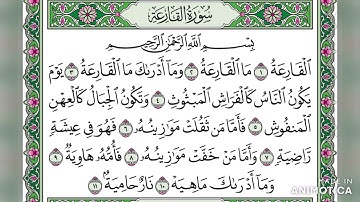 سُورَةُ القَارِعَةِ
بِسْمِ اللَّهِ الرَّحْمَٰنِ الرَّحِيمِ
الْقَارِعَةُ ١ مَا الْقَارِعَةُ ٢ وَمَا أَدْرَىٰكَ مَا الْقَارِعَةُ ٣ يَوْمَ
يَكُونُ النَّاسُ كَالْفَرَاشِ الْمَبْثُوثِ ٤ وَتَكُونُ الْجِبَالُ كَالْعِهْنِ
الْمَنْفُوشِ ٥ فَأَمَّا مَنْ ثَقُلَتْ مَوَٰزِينُهُۥ ٦ فَهُوَ فِي عِيشَةٍ
رَّاضِيَةٍ ٧ وَأَمَّا مَنْ خَفَّتْ مَوَٰزِينُهُۥ ٨ فَأُمُّهُۥ هَاوِيَةٌ ٩
وَمَا أَدْرَىٰكَ مَاهِيَهْ ١٠ نَارٌ حَامِيَةٌ ١١
MADE IN
ANIMOTICA